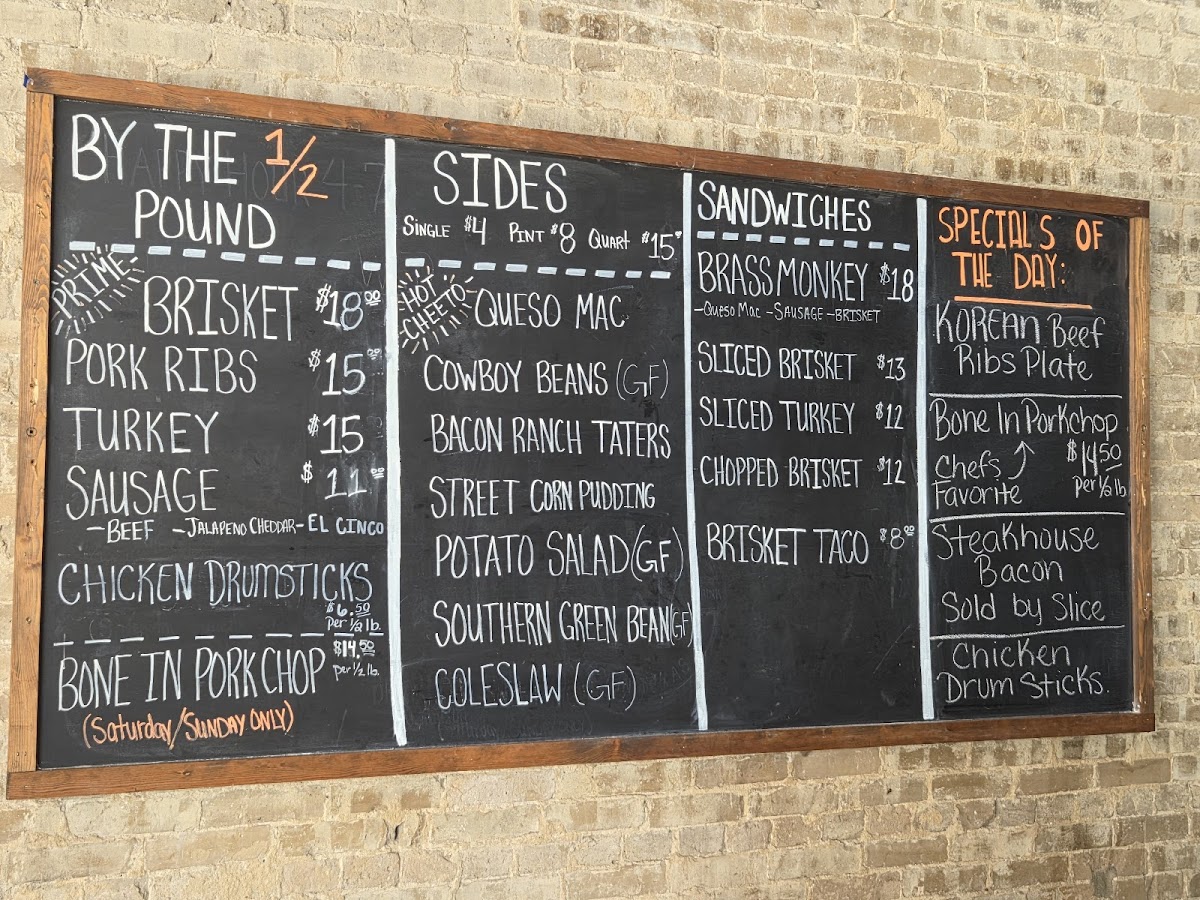 BY THE 1/2
POUND
PRIME
BRISKET $18.00
PORK RIBS $15.00
TURKEY $15
SAUSAGE $11.00
-BEEF -JALAPENO CHEDDAR- EL CINCO
CHICKEN DRUMSTICKS
$6.50
Per 1/2 lb.
BONE IN PORK CHOP $14.50
per 1/2 lb.
(Saturday/SUNDAY ONLY)
SIDES
SINGLE $4 PINT $8 QUART $15
HOT
CHEETO
QUESO MAC
COWBOY BEANS (GF)
BACON RANCH TATERS
STREET CORN PUDDING
POTATO SALAD (GF)
SOUTHERN GREEN BEAN (GF)
COLESLAW (GF)
SANDWICHES
BRASS MONKEY $18
-QUESO MAC -SAUSAGE -BRISKET
SLICED BRISKET $13
SLICED TURKEY $12
CHOPPED BRISKET $12
BRISKET TACO $8.00
SPECIALS OF
THE DAY:
KOREAN Beef
Ribs Plate
Bone In Porkchop
Chefs
Favorite
$14.50
Per 1/2 lb
Steakhouse
Bacon
Sold by Slice
Chicken
Drum Sticks.